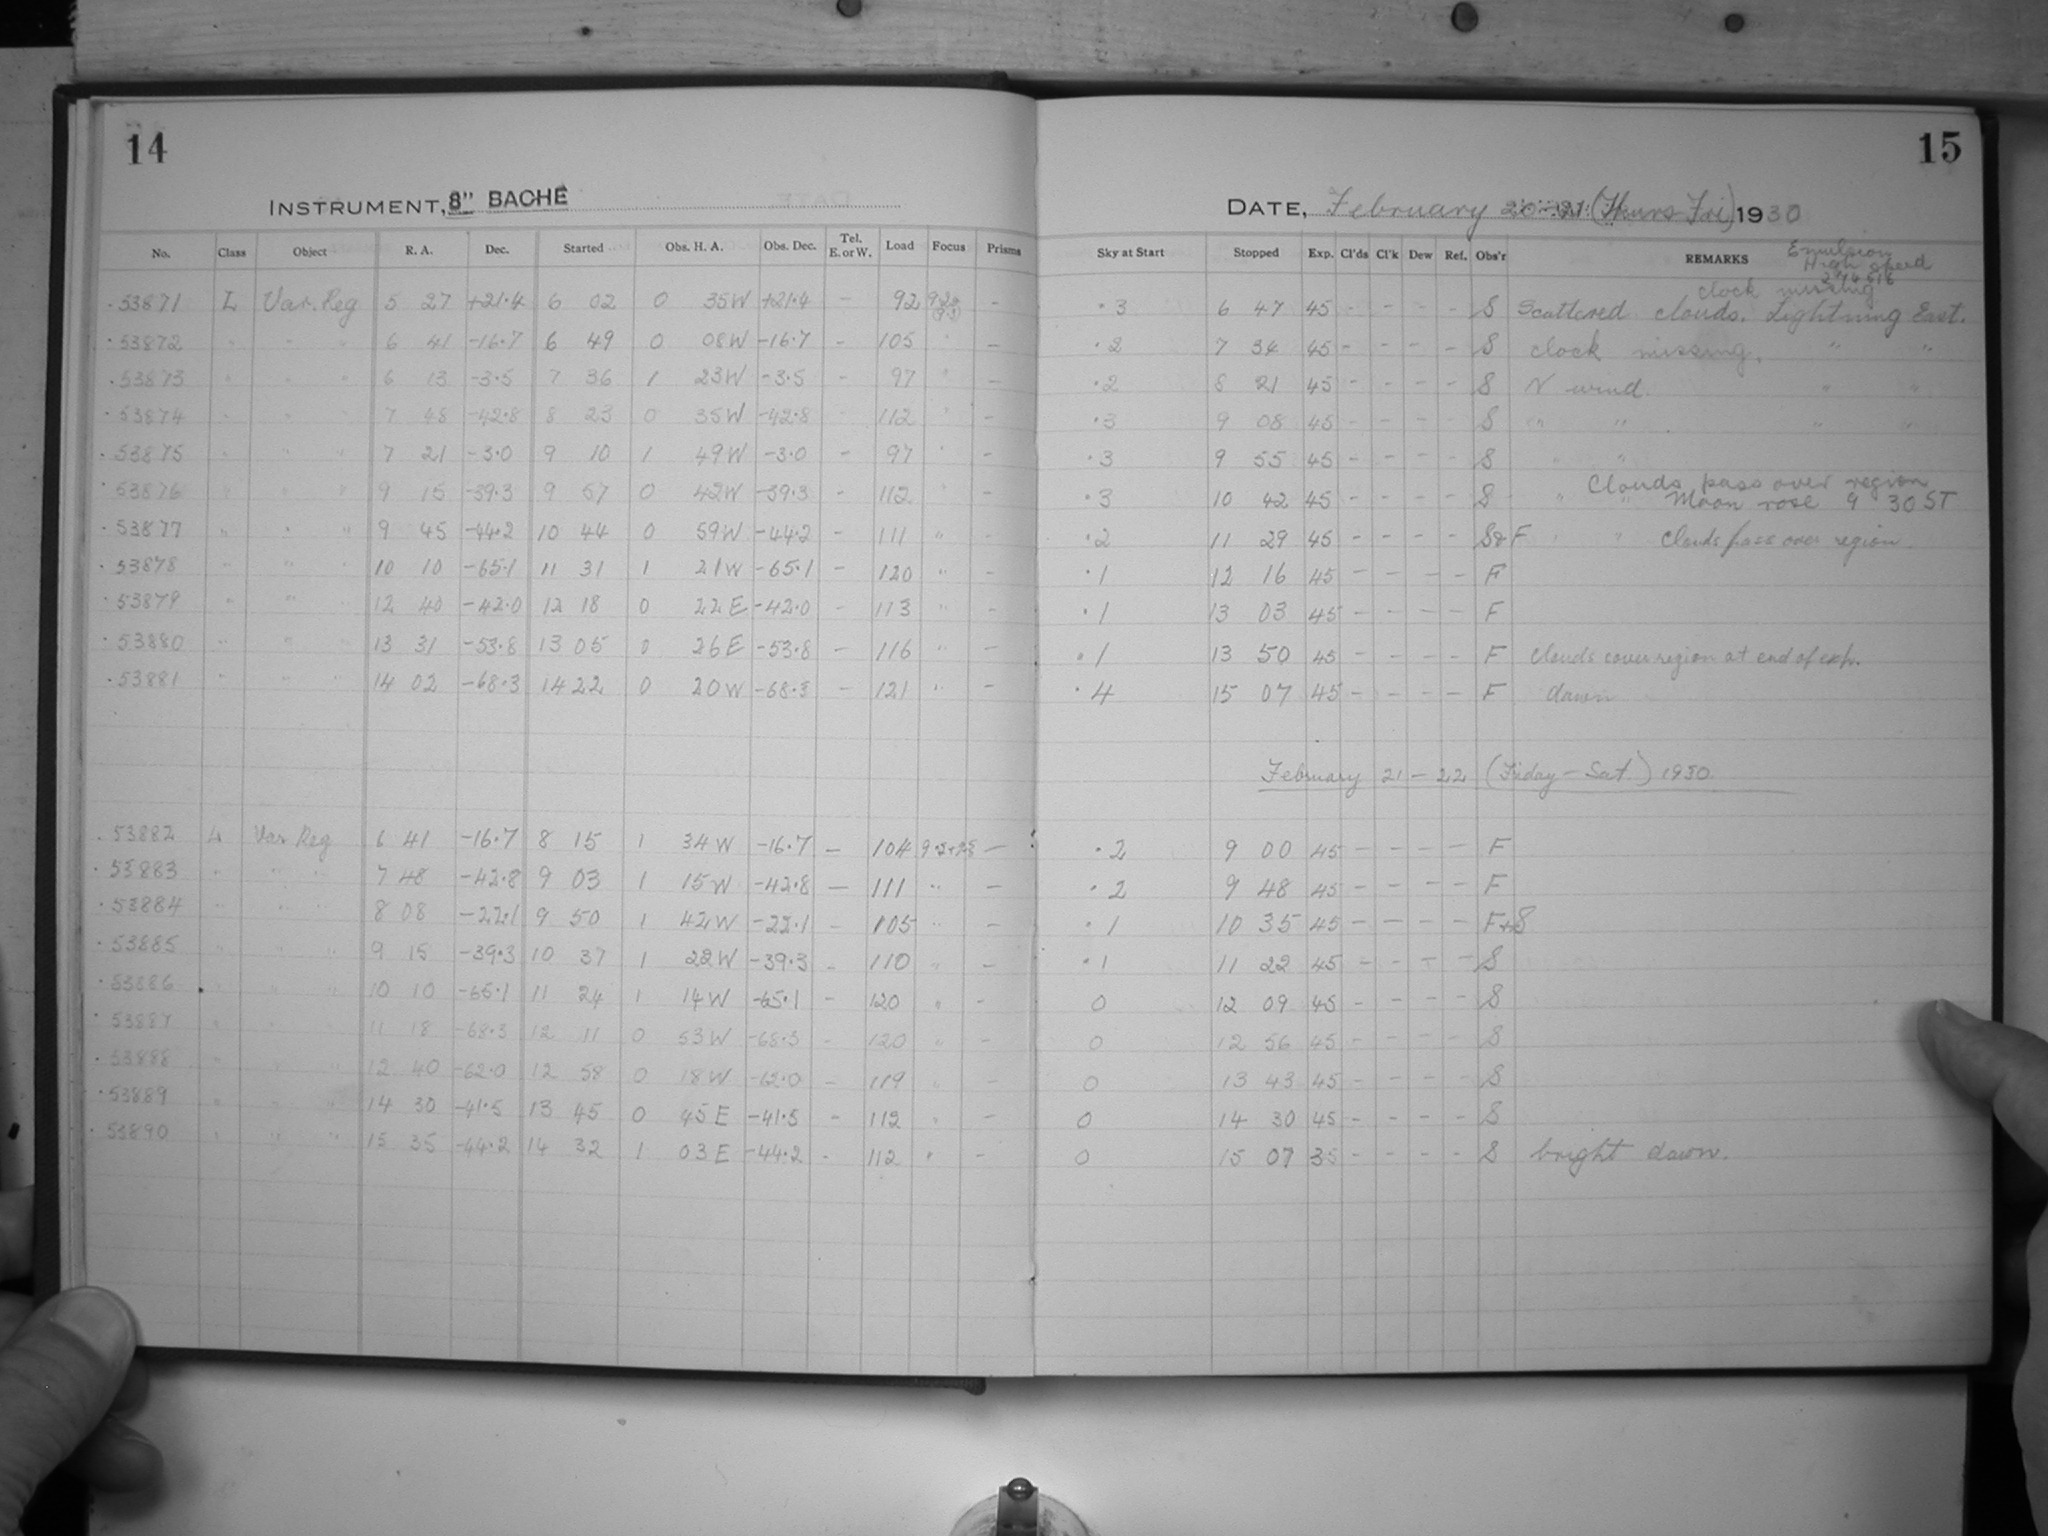 14
INSTRUMENT, 8" BACHE
No. Class Object R. A. Dec. Started Obs. H. A. Obs. Dec. Tel. E. or W. Load Focus Prisms
53871 L Var. Reg 5 27 +21.4 6 02 0 35W +21.4 - 92 -
53872 " " " 6 41 -16.7 6 49 0 08W -16.7 - 105 " -
53873 " " " 6 13 -3.5 7 36 1 23W -3.5 - 97 " -
53874 " " " 7 48 -42.8 8 23 0 35W -42.8 - 112 " -
53875 " " " 7 21 -3.0 9 10 1 49W -3.0 - 97 " -
53876 " " " 9 15 -39.3 9 57 0 42W -39.3 - 112 " -
53877 " " " 9 45 -44.2 10 44 0 59W -44.2 - 111 " -
53878 " " " 10 10 -65.1 11 31 1 21W -65.1 - 120 " -
53879 " " " 12 40 -42.0 12 18 0 22E -42.0 - 113 " -
53880 " " " 13 31 -53.8 13 05 0 26E -53.8 - 116 " -
53881 " " " 14 02 -68.3 14 22 0 20W -68.3 - 121 " -
53882 L Var Reg 6 41 -16.7 8 15 1 34W -16.7 - 104 -
53883 " " " 7 48 -42.8 9 03 1 15W -42.8 - 111 " -
53884 " " " 8 08 -22.1 9 50 1 42W -22.1 - 105 " -
53885 " " " 9 15 -39.3 10 37 1 22W -39.3 - 110 " -
53886 " " " 10 10 -65.1 11 24 1 14W -65.1 - 120 " -
53887 " " " 11 18 -68.3 12 11 0 53W -68.3 - 120 " -
53888 " " " 12 40 -62.0 12 58 0 18W -62.0 - 119 " -
53889 " " " 14 30 -41.5 13 45 0 45E -41.5 - 112 " -
53890 " " " 15 35 -44.2 14 32 1 03E -44.2 - 112 " -
15
DATE, February 20-21 (Thurs-Fri) 1930
Sky at Start Stopped Exp. Cl'ds Cl'k Dew Ref. Obs'r REMARKS
Emulsion
High speed
clock missing
.3 6 47 45 - - - - S Scattered clouds. Lightning East.
.2 7 34 45 - - - - S clock missing. " "
.2 8 21 45 - - - - S N wind. " "
.3 9 08 45 - - - - S " " " "
.3 9 55 45 - - - - S " "
Clouds pass over region
.3 10 42 45 - - - - S " " Moon rose 9 30 ST
.2 11 29 45 - - - - S&F " " Clouds pass over region
.1 12 16 45 - - - - F
.1 13 03 45 - - - - F
.1 13 50 45 - - - - F Clouds cover region at end of exp.
.4 15 07 45 - - - - F dawn
February 21-22 (Friday-Sat.) 1930
.2 9 00 45 - - - - F
.2 9 48 45 - - - - F
.1 10 35 45 - - - - F+S
.1 11 22 45 - - - - S
0 12 09 45 - - - - S
0 12 56 45 - - - - S
0 13 43 45 - - - - S
0 14 30 45 - - - - S
0 15 07 35 - - - - S bright dawn.